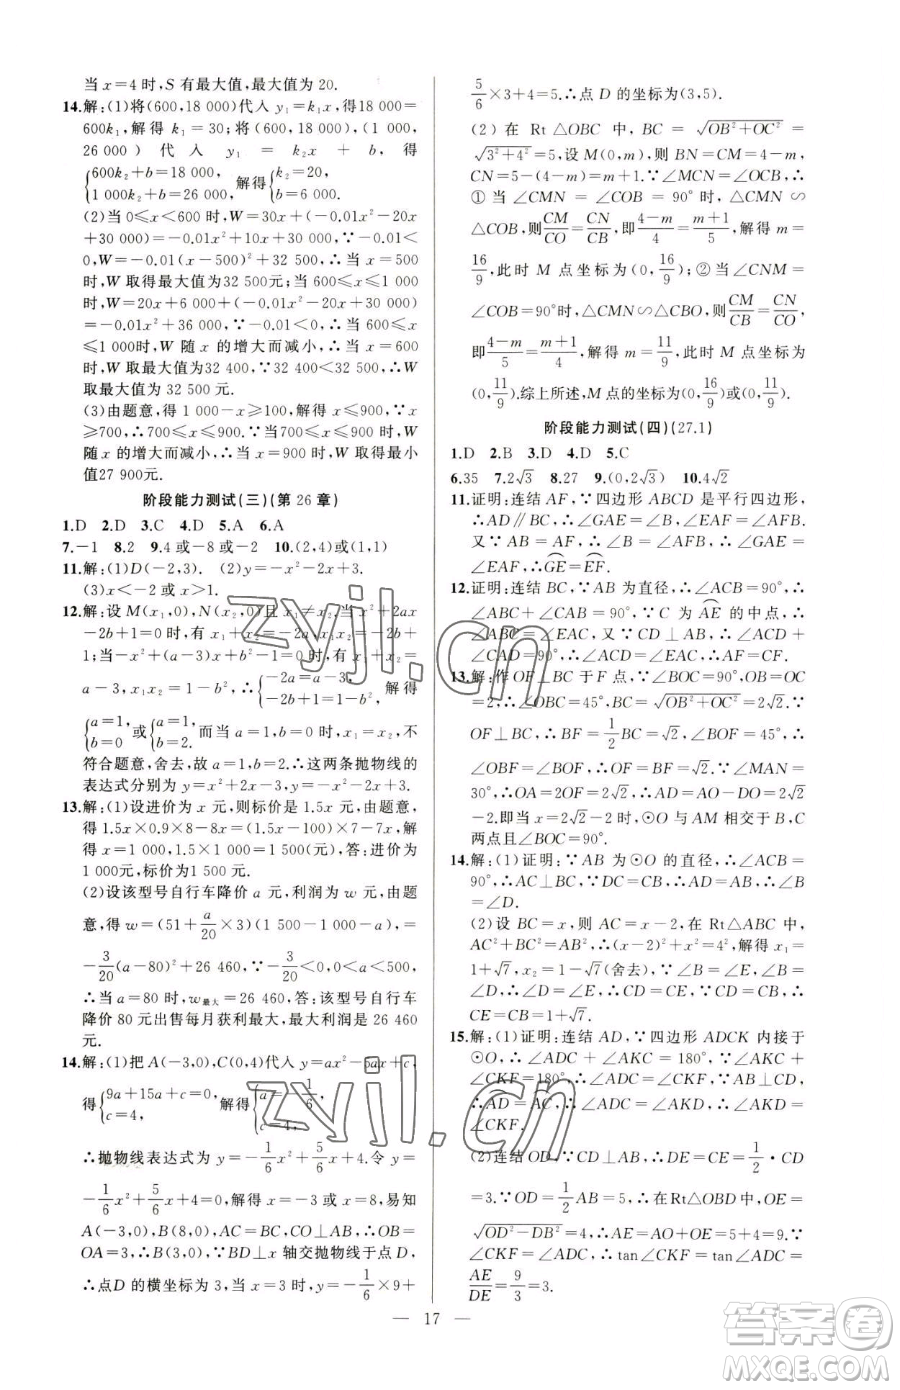 当 x=4 时,S 有最大值,最大值为 20.
14.解:(1)将(600,18 000)代入 y₁=k₁x,得18 000=
600k₁,解得 k₁=30;将(600,18 000),(1 000,
26 000) 代 入 y₁ = k₂x + b, 得
{600k₂+b=18 000, 1 000k₂+b=26 000, 解得{k₂=20, b=6 000.
(2)当 0≤x<600 时,W=30x+(-0.01x²-20x
+30 000)=-0.01x²+10x+30 000,∵-0.01<
0,W=-0.01(x-500)²+32 500,∴当 x=500
时,W 取得最大值为 32 500元;当 600≤x≤1 000
时,W=20x+6 000+(-0.01x²-20x+30 000)
=-0.01x²+36 000,∵-0.01<0,∴当 600≤x
≤1 000时,W 随 x 的增大而减小,∴当 x=600
时,W 取最大值为 32 400,∵32 400<32 500,∴W
取最大值为 32 500 元.
(3)由题意,得 1 000-x≥100,解得 x≤900,∵x
≥700,∴700≤x≤900,∵当 700≤x≤900 时,W
随 x 的增大而减小,∴当 x=900 时,W 取得最小
值27 900元.
阶段能力测试(三)(第 26 章)
1.D 2.D 3.C 4.D 5.A 6.A
7.-1 8.2 9.4 或-8 或-2 10.(2,4)或(1,1)
11.解:(1)D(-2,3). (2)y=-x²-2x+3.
(3)x<-2 或 x>1.
12.解:设 M(x₁,0),N(x₂,0)且 x₁≠x₂,当 x²+2ax
-2b+1=0时,有 x₁+x₂=-2a,x₁x₂=-2b+
1;当-x²+(a-3)x+b²-1=0 时,有 x₁+x₂=
a-3,x₁x₂=1-b²,∴{-2a=a-3, -2b+1=1-b², 解得
{a=1, b=0 或{a=1, b=2. 而当 a=1,b=0 时,x₁=x₂,不
符合题意,舍去,故 a=1,b=2.∴这两条抛物线的
表达式分别为 y=x²+2x-3和 y=-x²-2x+3.
13.解:(1)设进价为 x 元,则标价是 1.5x元,由题意,
得 1.5x×0.9×8-8x=(1.5x-100)×7-7x,解得
x=1 000,1.5×1 000=1 500(元),答:进价为
1 000元,标价为1 500元.
(2)设该型号自行车降价 a 元,利润为 w 元,由题
意,得 w=(51+a/20×3)(1 500-1 000-a),=
-3/20(a-80)²+26 460,∵-3/20<0,0<a<500,
∴当 a=80 时,w最大=26 460,答:该型号自行车
降价 80 元出售每月获利最大,最大利润是 26 460
元.
14.解:(1)把 A(-3,0),C(0,4)代入 y=ax²-5ax+c,
得{9a+15a+c=0, c=4, 解得{a=-1/6, c=4,
∴抛物线表达式为 y=-1/6x²+5/6x+4.令 y=
-1/6x²+5/6x+4=0,解得 x=-3 或 x=8,易知
A(-3,0),B(8,0),AC=BC,CO⊥AB,∴OB=
OA=3,∴B(3,0),∵BD⊥x 轴交抛物线于点 D,
∴点D 的横坐标为 3,当 x=3 时,y=-1/6×9+
5/6×3+4=5.∴点 D 的坐标为(3,5).
(2)在 Rt △OBC 中,BC=√OB²+OC²=
√3²+4²=5,设 M(0,m),则 BN=CM=4-m,
CN=5-(4-m)=m+1,∵∠MCN=∠OCB,∴
① 当 ∠CMN = ∠COB = 90° 时,△CMN ∽
△COB,则CM/CO=CN/CB,即(4-m)/4=(m+1)/5,解得 m=
16/9,此时 M 点坐标为(0,16/9);②当∠CNM=
∠COB=90°时,△CMN∽△CBO,则CM/CB=CN/CO,
即(4-m)/5=(m+1)/4,解得 m=11/9,此时 M 点坐标为
(0,11/9).综上所述,M 点的坐标为(0,16/9)或(0,11/9).
阶段能力测试(四)(27.1)
1.D 2.B 3.D 4.D 5.C
6.35 7.2√3 8.27 9.(0,2√3) 10.4√2
11.证明:连结 AF,∵四边形 ABCD 是平行四边形,
∴AD∥BC,∴∠GAE=∠B,∠EAF=∠AFB.
又∵AB=AF,∴∠B=∠AFB,∴∠GAE=
∠EAF,∴GE=EF.
12.证明:连结 BC,∵AB 为直径,∴∠ACB=90°,
∠ABC+∠CAB=90°,∵C 为 AE 的中点,∴
∠ABC=∠EAC,又∵CD⊥AB,∴∠ACD+
∠CAD=90°,∴∠ACD=∠EAC,∴AF=CF.
13.解:作 OF⊥BC 于 F 点,∵∠BOC=90°,OB=OC
=2,∴∠OBC=45°,BC=√OB²+OC²=2√2.∵
OF⊥BC,∴BF=1/2BC=√2,∵∠BOF=45°,∴
∠OBF=45°,∴OF=BF=√2.∵∠MAN=
30°,∴OA=2OF=2√2,∴AD=AO-DO=2√2
-2.即当 x=2√2-2时,⊙O 与 AM 相交于 B、C
两点且∠BOC=90°.
14.解:(1)证明:∵AB 为⊙O 的直径,∴∠ACB=
90°,∴AC⊥BC,∵DC=CB,∴AD=AB,∴∠B
=∠D.
(2)设 BC=x,则 AC=x-2,在 Rt△ABC 中,
AC²+BC²=AB²,∴(x-2)²+x²=4²,解得 x₁
=1+√7,x₂=1-√7(舍去),∵∠B=∠E,∠B
=∠D,∴∠D=∠E,∴CD=CE.∵CD=CB,∴
CE=CB=1+√7.
15.解:(1)证明:连结 AD,∵四边形 ADCK 内接于
⊙O,∴∠ADC+∠AKC=180°,∵∠AKC+
∠CKF=180°,∴∠ADC=∠CKF,AB⊥CD,
∴AD=AC,∴∠ADC=∠AKD,∴∠AKD=
∠CKF.
(2)连结 OD,∵CD⊥AB,∴DE=CE=1/2·CD
=3.∵OD=1/2AB=5,∴在Rt△OBD 中,OE=
√OD²-DB²=4,∴AE=AO+OE=5+4=9.∵
∠CKF=∠ADC,∴tan∠CKF=tan∠ADC=
AE/DE=9/3=3.
— 17 —
zyjl.cn
zyjl.cn
答案圈
MXQE.COM